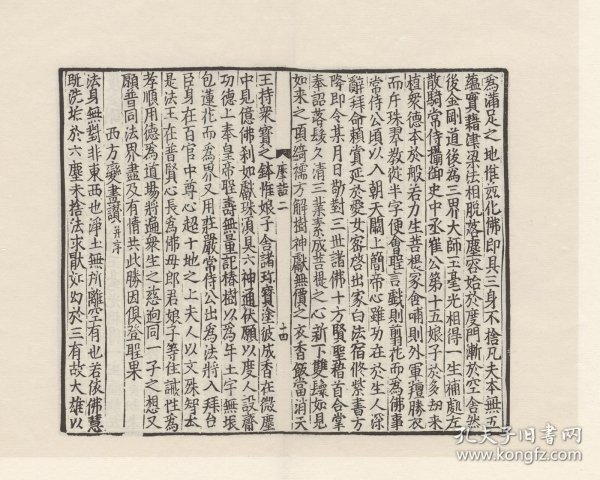 為滿足之地惟兹化佛即具三身不捨凡夫本無五
藴實藉津梁法相脫落塵容始於度門漸於空舍然
後金剛道後為三界大師玉毫光相得一生補處左
散騎常侍攝御史中丞崔公第十五娘子於多劫来
植衆德本於般若力生菩提家食哺則外葷羶勝衣
而斥珠翠教從半字便會聖言戲則翦花而為佛事
常侍公頃以入朝天闕上簡帝心雖功在於生人深
辭拜命願賞延於愛女密啓出家白法宿修紫書方
降即令某月日敬對三世諸佛十方賢聖稽首合掌
奉詔落髮久清三業素成菩提之心新下雙鬟如見
如来之頂綺襦方解樹神獻無價之衣香飯當消天
摩詰二
十四
王持衆寶之鉢惟娘子舍諸珎寶塗彼戒香在微塵
中見億佛刹如獻珠湏具六神通伏願以度人設齋
功德上奉皇帝聖壽無量記椿樹以為年土宇無垠
包蓮花而為界又用莊嚴常侍公出為法將入拜台
臣身在百官之中尊心超十地之上夫人以文殊智本
是法王在普賢心長為佛母郎君娘子等住誠性為
孝順用德為道場將遍衆生之慈迥同一子之想又
願普同法界盡及有情共此勝因俱登聖果
西方變畫讚并序
法身無對非東西也淨土無所離空有也若依佛慧
既洗垢於六塵未捨法求猒如幻於三有故大雄以
孔夫子旧书网
www.kongfz.com